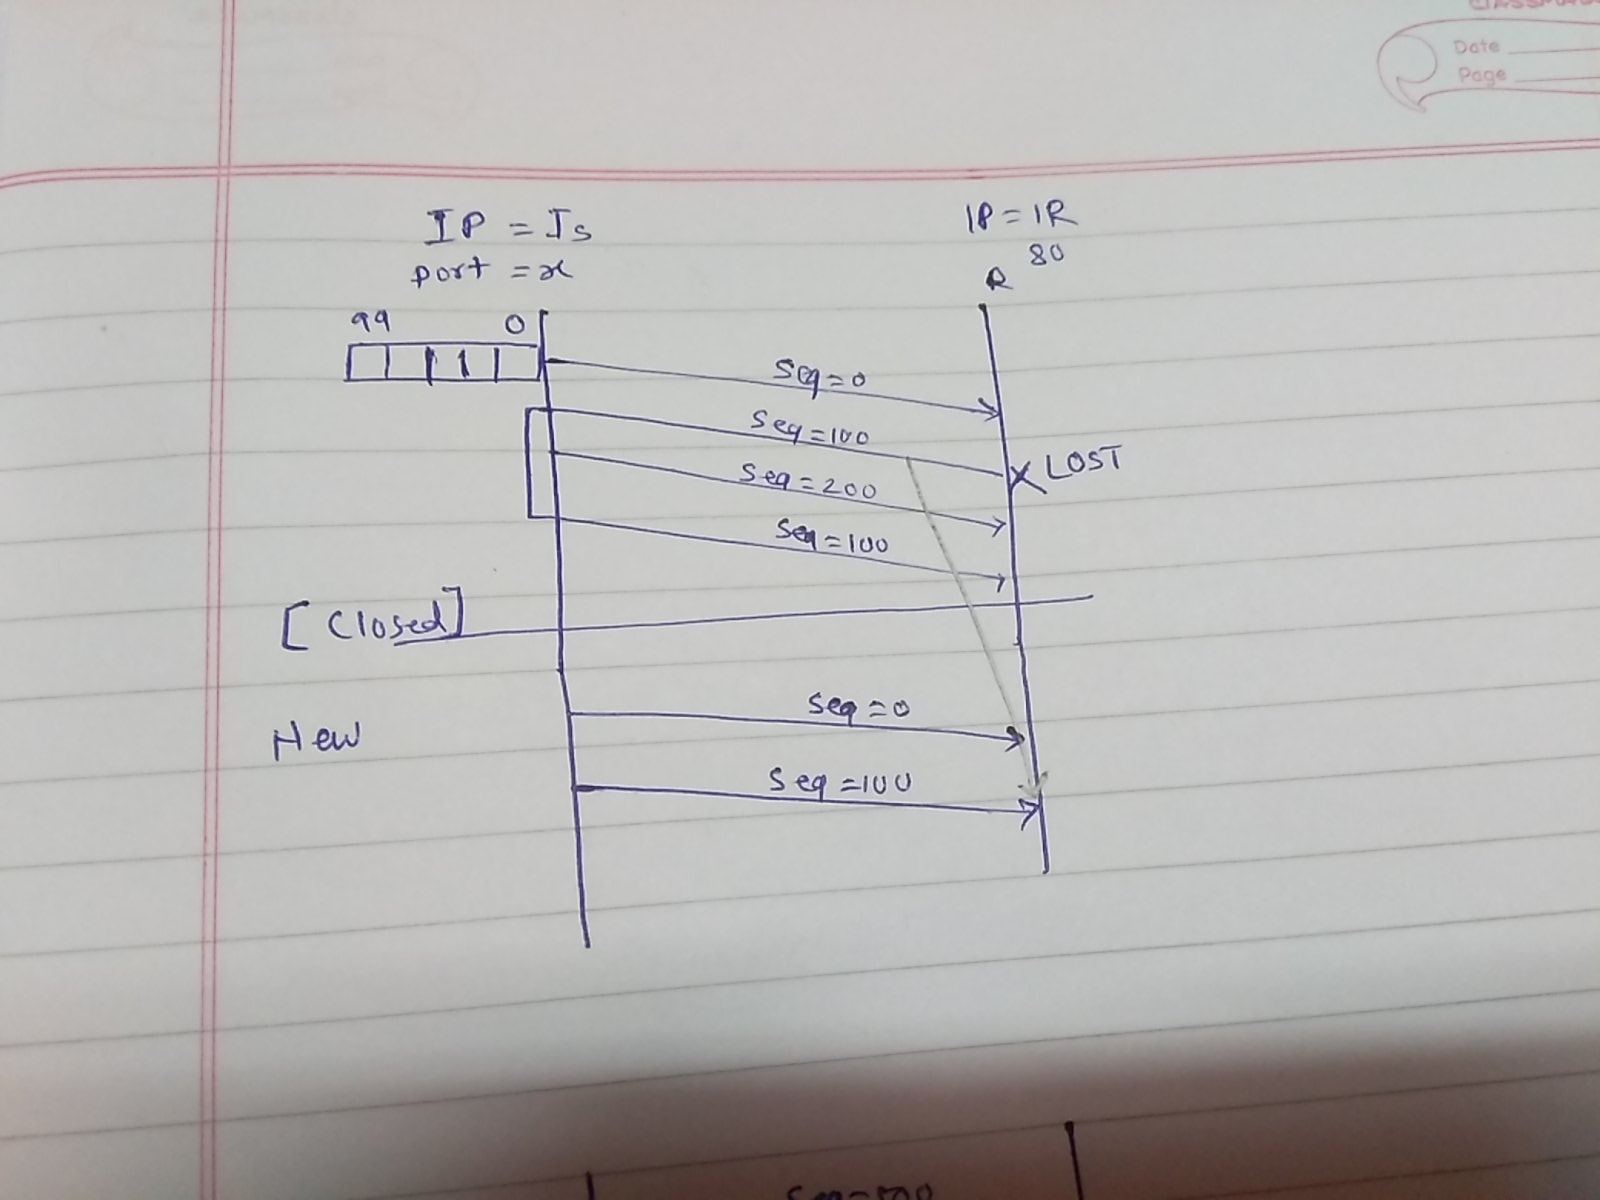 Date
Page
IP = Is
port = x
IP = IR
80
R
99 0
Seq=0
Seq=100
X LOST
Seq=200
Seq=100
[Closed]
Seq=0
New
Seq=100